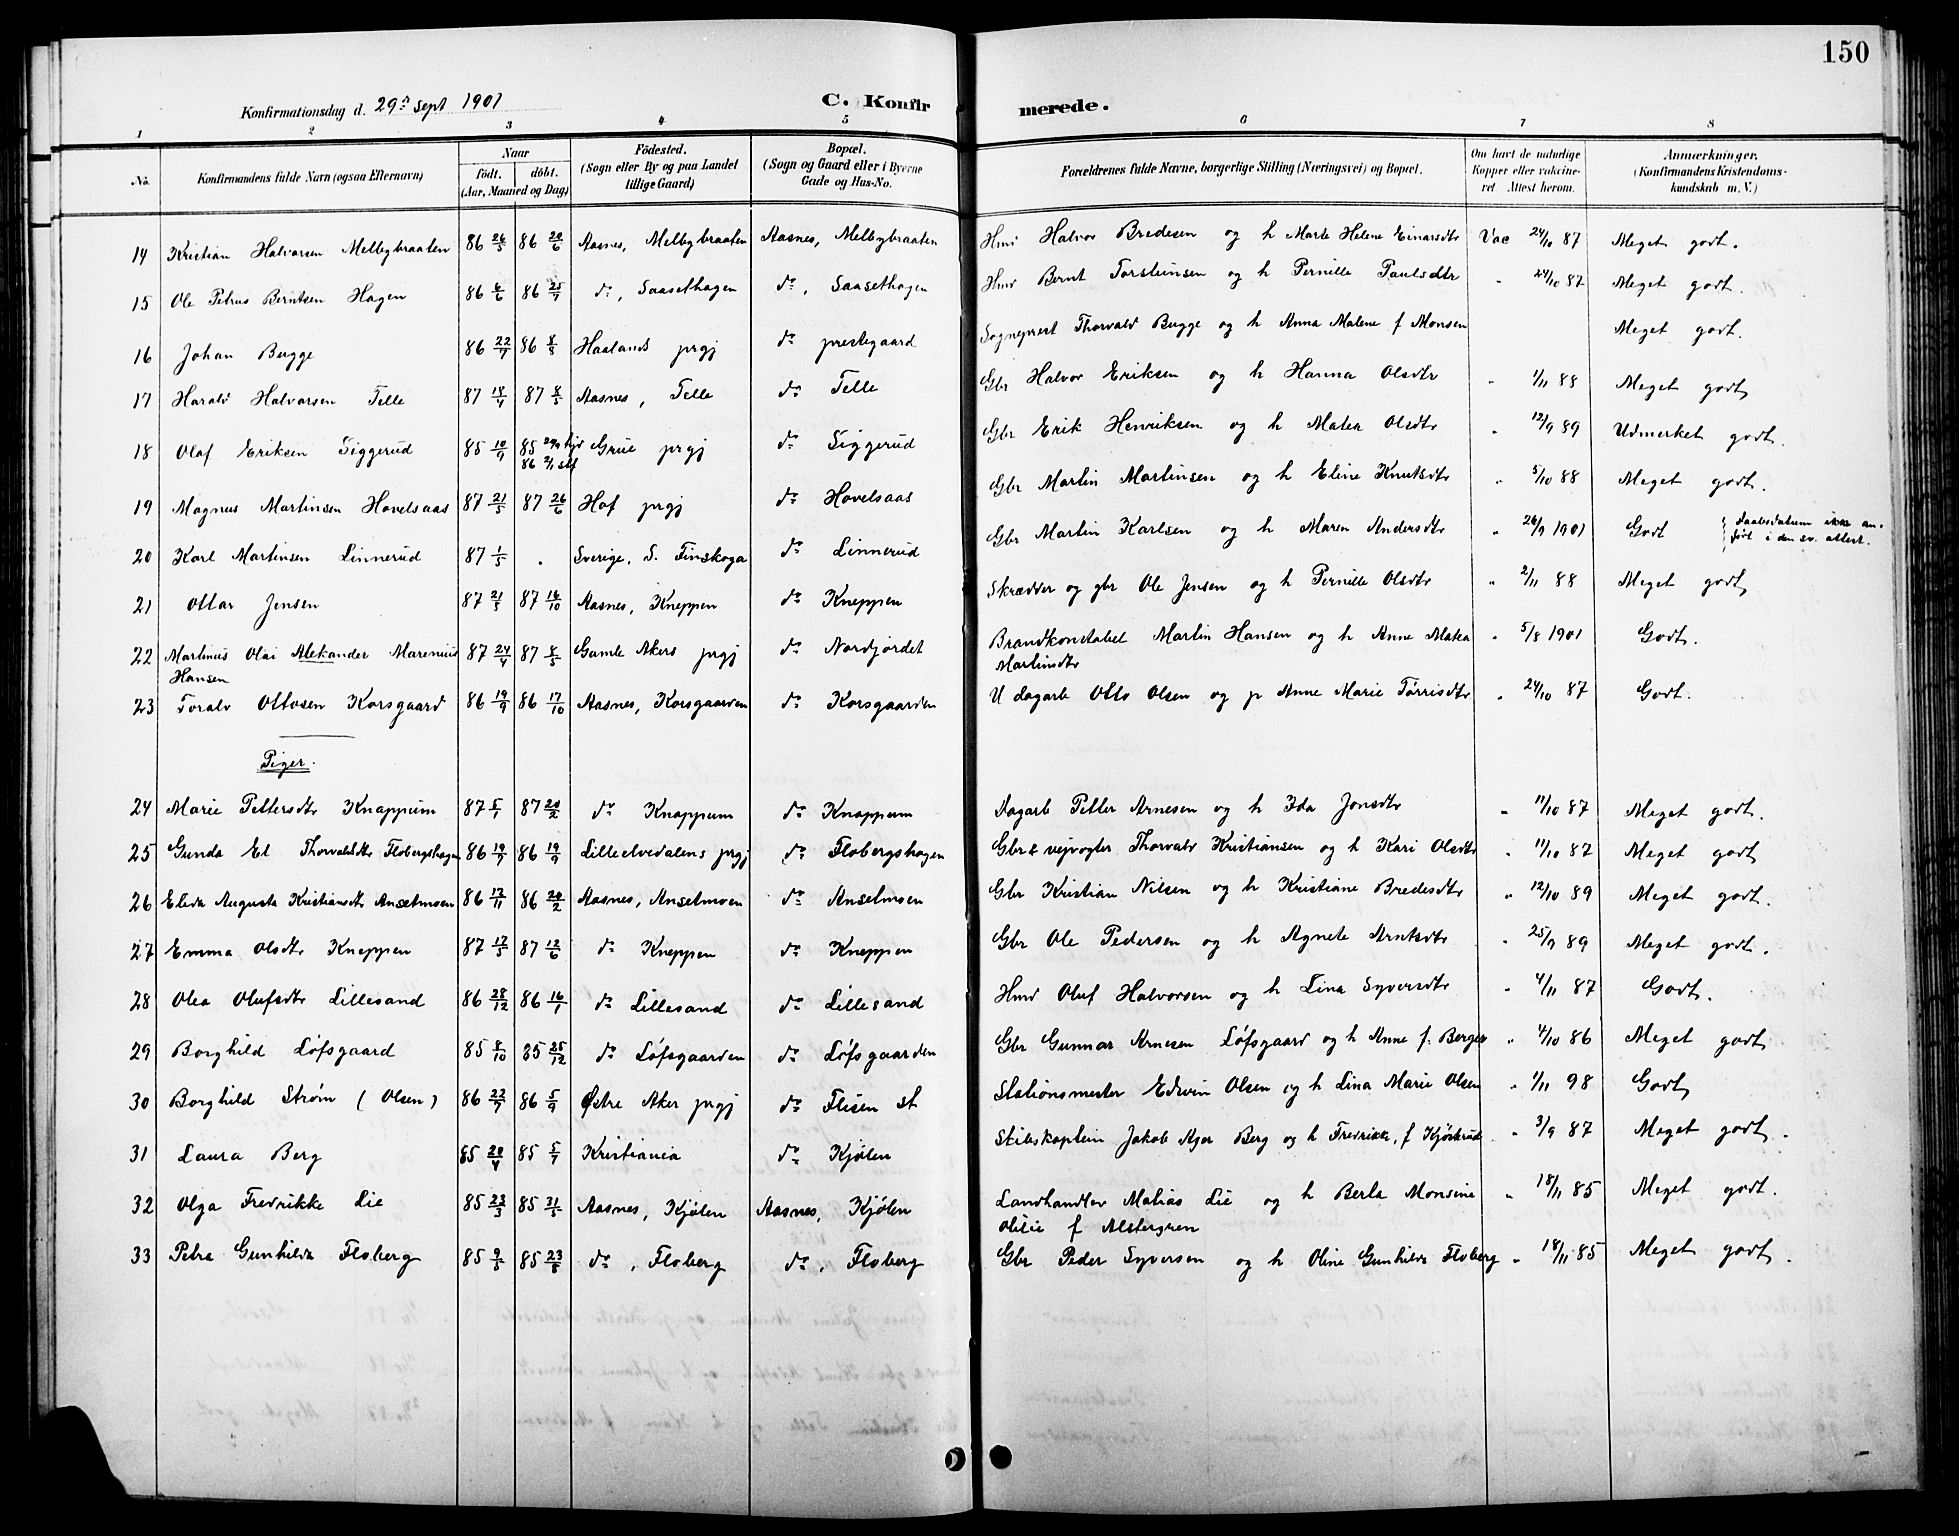 150
Konfirmationsdag d. 29de sept 1901 C. Konfirmerede.
1 2 3 4 5 6 7 8
No. Konfirmandens fulde Navn (ogsaa Efternavn) Naar födt. döbt. (Aar, Maaned og Dag) Födested. (Sogn eller By og paa Landet tillige Gaard) Bopæl. (Sogn og Gaard eller i Byerne Gade og Hus-No. Forældrenes fulde Navne, borgerlige Stilling (Næringsvei) og Bopæl. Om havt de naturlige Kopper eller vaccineret. Attest herom. Anmærkninger. (Konfirmandens Kristendomskundskab m. V.)
14 Kristian Halvorsen Melbybraaten 86 26/5 86 20/6 Aasnes, Melbybraaten Aasnes, Melbybraaten Hmd Halvor Bredesen og h Marte Helene Einarsdtr Vac 24/10 87 Meget godt.
15 Ole Petrus Berntsen Hagen 86 6/6 86 25/7 do, Saasethagen do, Saasethagen Hmd Bernt Torstensen og h Pernille Paulsdtr " 24/10 87 Meget godt.
16 Johan Bugge 86 22/7 86 8/5 Haalands prgj do prestegaard Sogneprest Thorvald Bugge og h Anna Malene f Monsen Meget godt.
17 Harald Halvorsen Telle 87 18/4 87 8/5 Aasnes, Telle do Telle Gbr Halvor Eriksen og h Hanna Olsdtr " 1/11 88 Meget godt
18 Olaf Eriksen Siggerud 85 10/9 85 29/9 hjd 86 2/1 stf Grue prgj do Siggerud Gbr Erik Henriksen og h Matea Olsdtr " 12/9 89 Udmerket godt.
19 Magnus Martinsen Hovelsaas 87 21/5 87 26/6 Hof prgj do Hovelsaas Gbr Martin Martinsen og h Eline Knutsdtr " 5/10 88 Meget godt.
20 Karl Martinsen Linnerud 87 1/5 " Sverige, S. Finskoga do Linnerud Gbr Martin Karlsen og h Maren Andersdtr " 26/9 1901 Godt { Daabsdatum ikke anført i den sv. attest.
21 Ottar Jensen 87 21/5 87 16/10 Aasnes, Kneppen do Kneppen Skrædder og gbr Ole Jensen og h Pernille Olsdtr " 2/11 88 Meget godt
22 Martinus Olai Aleksander Marenius 87 24/4 87 8/5 Gamle Akers prgj do Nordjordet Brandkonstabel Martin Hansen og h Anne Matea " 5/8 1901 Godt.
Hansen Martinsdtr
23 Toralv Ottosen Korsgaard 86 19/9 86 17/10 Aasnes, Korsgaarden do Korsgaarden U dagarb Otto Olsen og p Anne Marie Tørrisdtr " 24/10 87 Godt.
Piger.
24 Marie Pettersdtr Knappum 87 5/1 87 20/2 do Knappum do Knappum Dagarb Petter Arnesen og h Ida Jonsdtr " 11/10 87 Meget godt.
25 Gunda El Thorvaldsdtr Flobergshagen 86 19/7 86 19/9 Lilleelvedalens prgj do Flobergshagen Gbr & vejvogter Thorvald Kristiansen og h Kari Olsdtr " 11/10 87 Meget godt
26 Elida Augusta Kristiansdtr Anselmoen 86 17/11 86 20/2 Aasnes, Anselmoen do Anselmoen Gbr Kristian Nilsen og h Kristiane Bredesdtr " 12/10 89 Meget godt.
27 Emma Olsdtr Kneppen 87 17/5 87 12/6 do Kneppen do Kneppen Gbr Ole Pedersen og h Agnete Arntsdtr " 25/9 89 Meget godt.
28 Olea Olufsdtr Lillesand 86 28/12 86 16/1 do Lillesand do Lillesand Hmd Oluf Halvorsen og h Lina Syversdtr " 4/11 87 Godt.
29 Borghild Løfsgaard 85 8/10 85 25/12 do Løfsgaarden do Løfsgaarden Gbr Gunnar Arnesen Løfsgaard og h Anne f. Berger " 4/10 86 Meget godt
30 Borghild Strøm (Olsen) 86 22/7 86 5/9 Østre Aker prgj do Flisen st Stationsmester Edvin Olsen og h Lina Marie Olsen " 1/11 98 Godt
31 Laura Berg 85 20/4 85 5/7 Kristiania do Kjølen Skibskaptein Jakob Berg og h Fredrikke, f " 3/9 87 Meget godt.
32 Olga Fredrikke Lie 85 23/3 85 31/5 Aasnes, Kjølen Aasnes, Kjølen Landhandler Matias Lie og h Berta Monsine " 18/11 85 Meget godt.
Olisie f Alstergren
33 Petra Gunhilda Floberg 85 9/5 85 23/8 do, Floberg do, Floberg Gbr Peder Syversen og h Oline Gunhilda Floberg " 18/11 85 Meget godt.